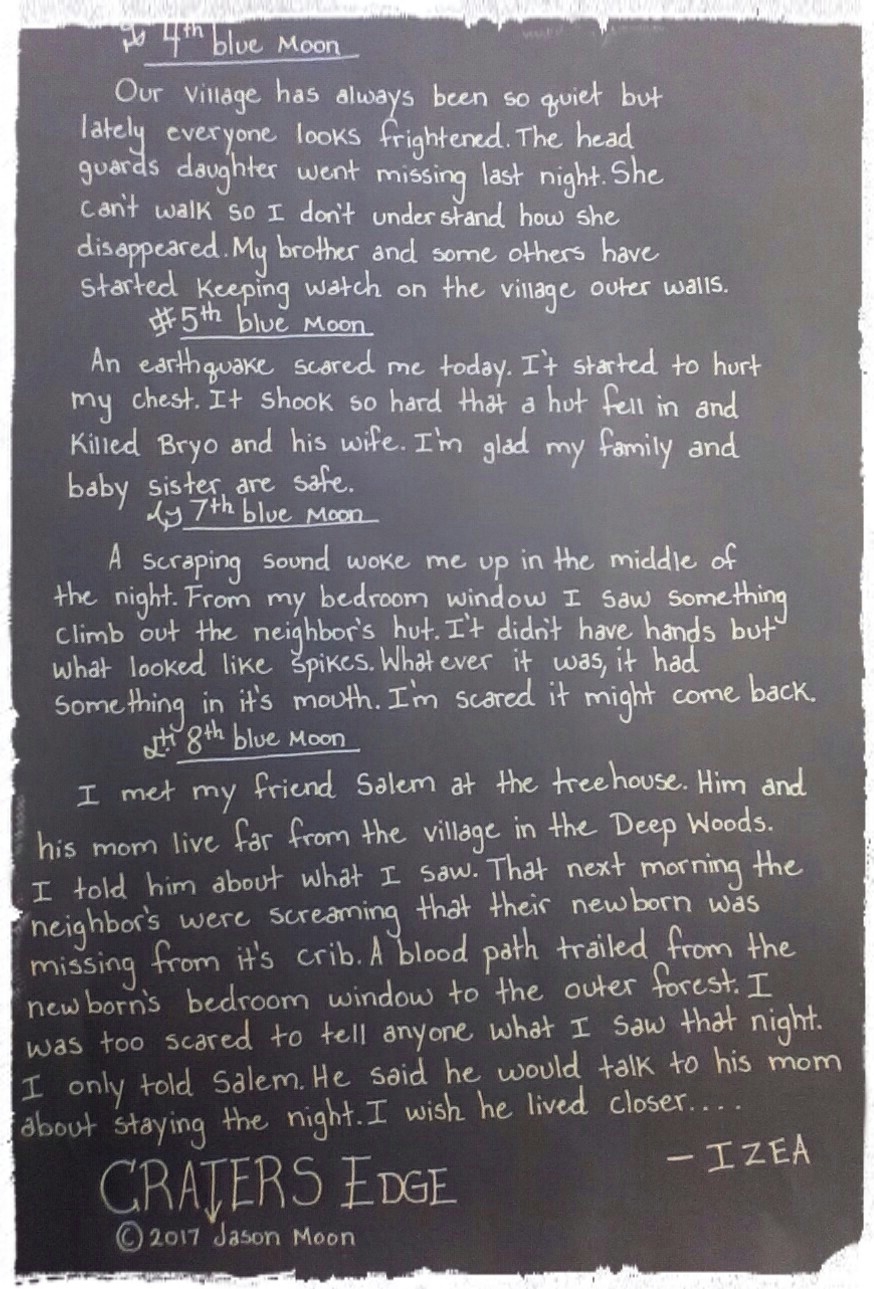 4th blue Moon
Our village has always been so quiet but
lately everyone looks frightened. The head
guards daughter went missing last night. She
can't walk so I don't understand how she
disappeared. My brother and some others have
started keeping watch on the village outer walls.
5th blue Moon
An earthquake scared me today. I't started to hurt
my chest. It shook so hard that a hut fell in and
killed Bryo and his wife. I'm glad my family and
baby sister are safe.
7th blue Moon
A scraping sound woke me up in the middle of
the night. From my bedroom window I saw something
climb out the neighbor's hut. I't didn't have hands but
what looked like spikes. What ever it was, it had
something in it's mouth. I'm scared it might come back.
8th blue Moon
I met my friend Salem at the treehouse. Him and
his mom live far from the village in the Deep Woods.
I told him about what I saw. That next morning the
neighbor's were screaming that their newborn was
missing from it's crib. A blood path trailed from the
newborn's bedroom window to the outer forest. I
was too scared to tell anyone what I saw that night.
I only told Salem. He said he would talk to his mom
about staying the night. I wish he lived closer....
- IZEA
CRATERS EDGE
© 2017 Jason Moon